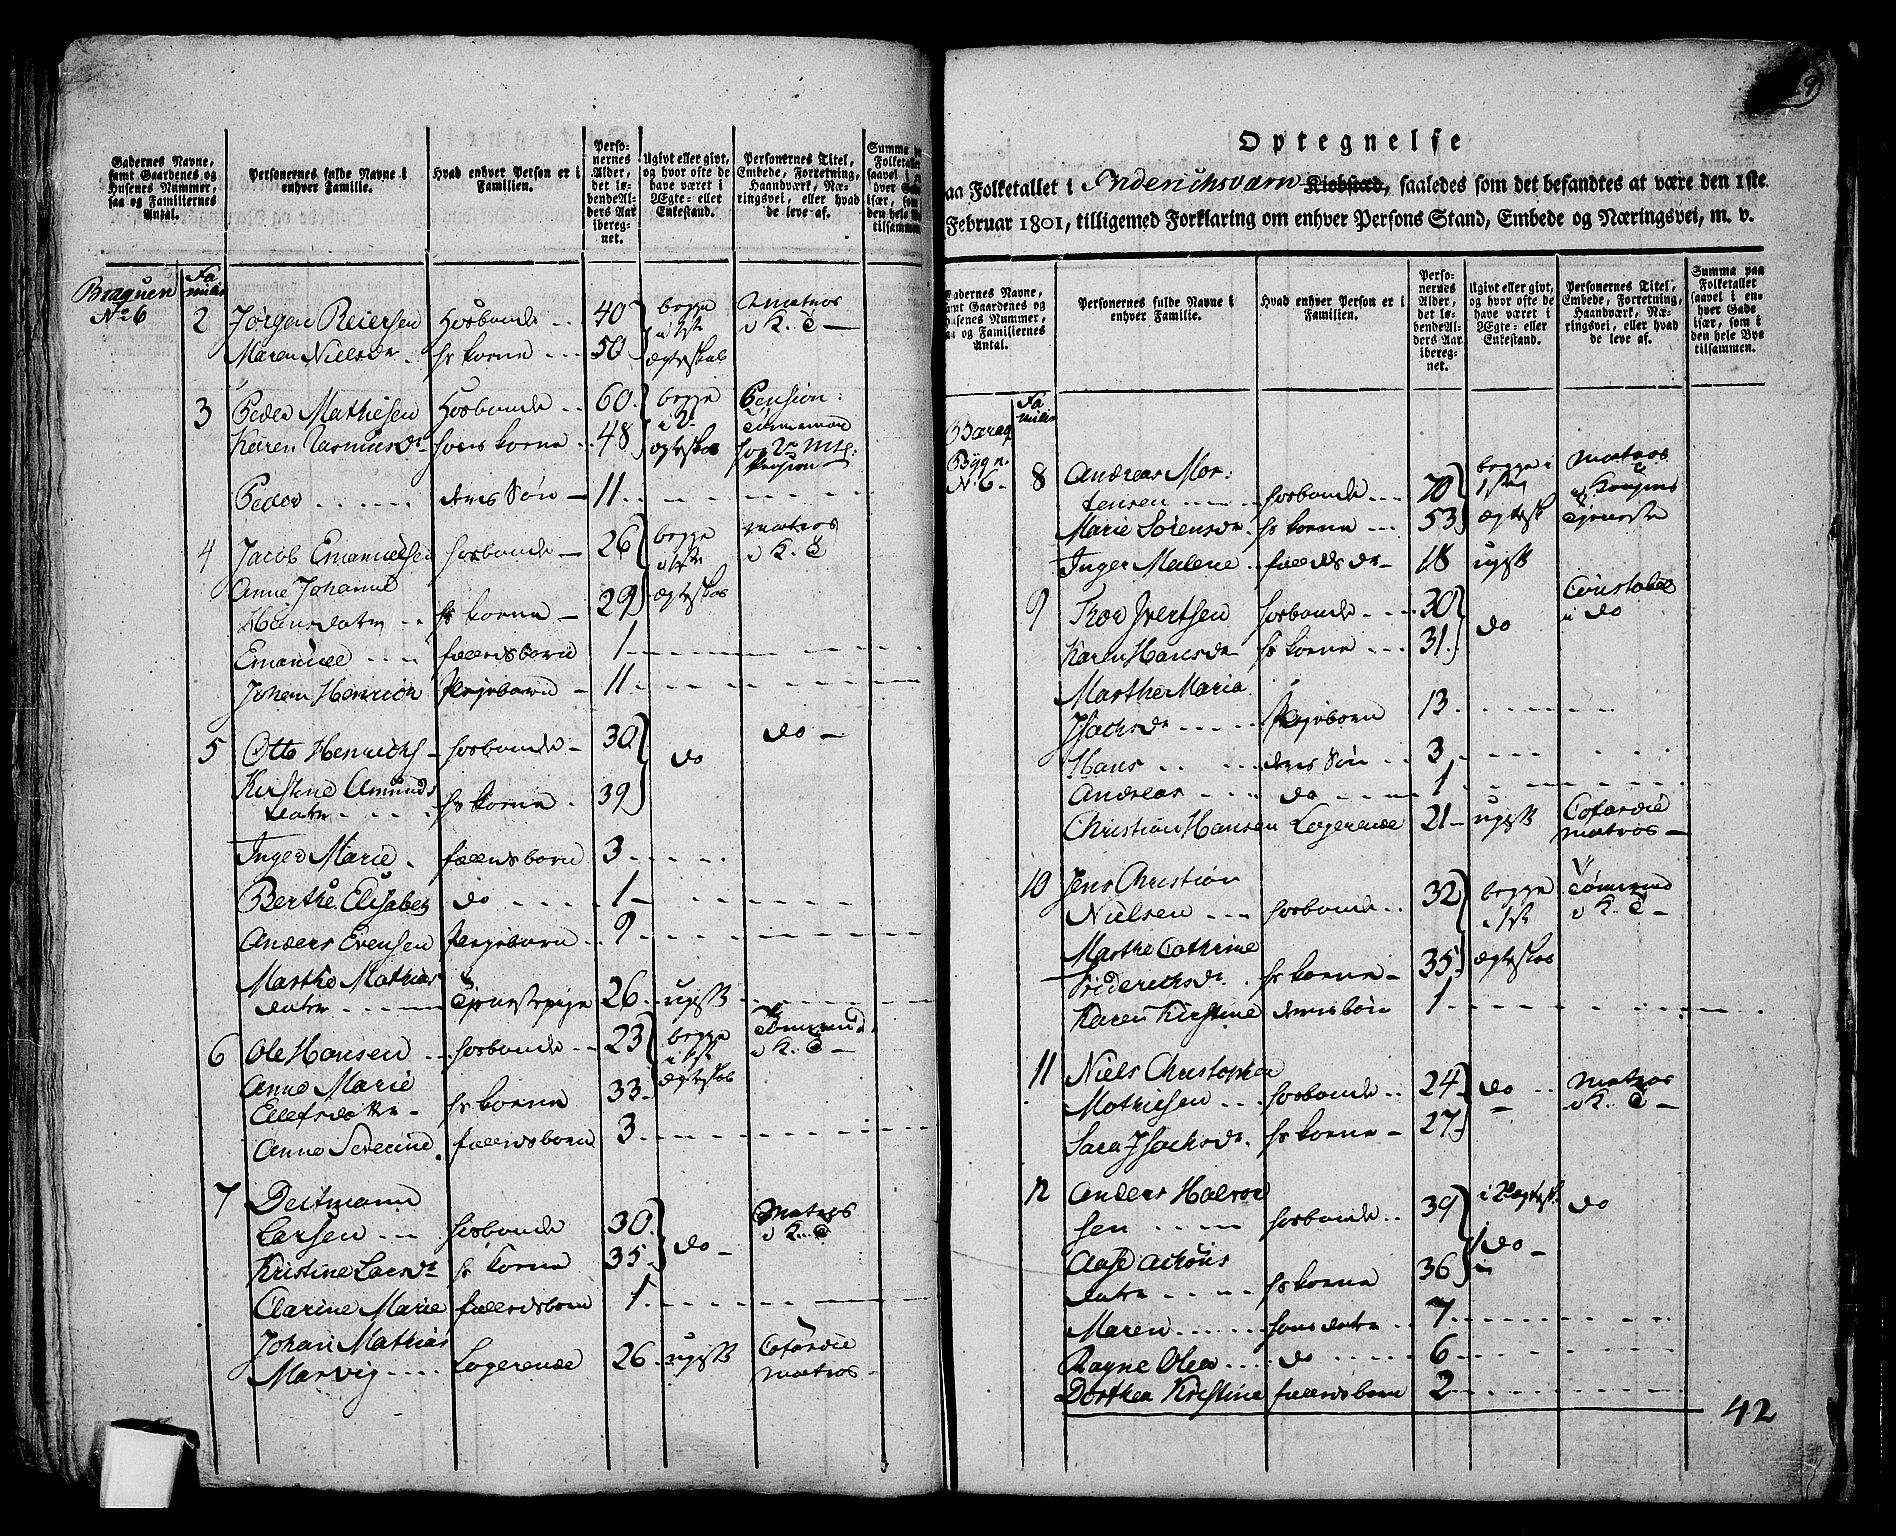 Gadernes Navne, samt Gaardenes og Husenes Nummer, saa og Familiernes Antal.
Personernes fulde Navne i enhver Familie.
Hvad enhver Person er i Familien.
Personernes Alder, det løbende Alders Aar iberegnet.
Ugivt eller givt, og hvor ofte de have været i Ægte- eller Enkestand.
Personernes Titel, Embede, Forretning, Haandværk, Næringsvei, eller hvad de leve af.
Braquen Fa
No 6 milie
2 Jørgen Reiersen Hosbonde 40 begge Matros
i 1ste i K. T
Maren Nielsdr hs kone 50 ægteskab
3 Peder Mathiesen Hosbonde 60 begge Pension:
Karen Rasmusdr hans kone 48 i ægteskab
Pension
Peder deres Søn 11
4 Jacob Emanuelsen hosbonde 26 begge matros
i 1ste i K. T
Anne Johanne
Hansdatr hs kone 29 ægteskab
Emanuel fælledsbarn 1
Johan Henrich Plejebarn 11
5 Otto Henrichs hosbonde 30 do do
Kirstine Amunds
datr hs kone 39
Inger Marie fælledsbarn 3
Berthe Elisabeth do 1
Anders Evensen Plejebarn 9
Marthe Mathias
datr Tjenestepige 26 ugift
6 Ole Hansen hosbonde 23 begge Tømmermd
i 1st i K. T
Anne Marie ægteskab
Ellefsdatr hs kone 33
Anne Severine fælledsbarn 3
7 Deitmann
Larsen hosbonde 30 do Matros
i K. T
Kristine Larsdr hs kone 35
Clarine Marie fælledsbarn 1
Johan Mathias
Marvig Logerende 26 ugift Cofardie
matros
29
Optegnelse
paa Folketallet i Friderichsværn Kiøbstæd, saaledes som det befandtes at være den 1ste
Februar 1801, tilligemed Forklaring om enhver Persons Stand, Embede og Næringsvei, m. v.
Gadernes Navne, samt Gaardenes og Husenes Nummer, saa og Familiernes Antal.
Personernes fulde Navne i enhver Familie.
Hvad enhver Person er i Familien.
Personernes Alder, det løbende Alders Aar iberegnet.
Ugivt eller givt, og hvor ofte de have været i Ægte- eller Enkestand.
Personernes Titel, Embede, Forretning, Haandværk, Næringsvei, eller hvad de leve af.
Summa paa Folketallet saavel i enhver Gade især, som i den hele Bye tilsammen.
Baraq Fa
Bygn. milie
No 6
8 Andreas Mor-
tensen hosbonde 70 begge i Matros
1ste i Kongens
Marie Sørensdr hs kone 53 ægtesk Tjeneste
Inger Malene fælleds dr 18 ugift
9 Thor Ivertsen hosbonde 30 do Constabel
i do
Karen Hansdr hs kone 31
Marthe Maria
Isachsdr Plejebarn 13
Hans deres Søn 3
Andreas do 1
Christian Hansen Logerende 21 ugift Cofardie
matros
10 Jens Christian
Nielsen hosbonde 32 begge Tømmermd
i 1st i K. T
Marthe Cathrine
Friderichsdr hs kone 35 ægteskab
Karen Kirstine deres barn 1
11 Niels Christopher
Mathiesen hosbonde 24 do Matros
i K. T
Sara Isachsdr hs kone 27
12 Anders Halvor
sen hosbonde 39 i 2d ægtesk do
Aase
datr hs kone 36 do
Maren hans datr 7
Ragne Olea do 6
Dorthea Kirstine fælleds barn 2
42